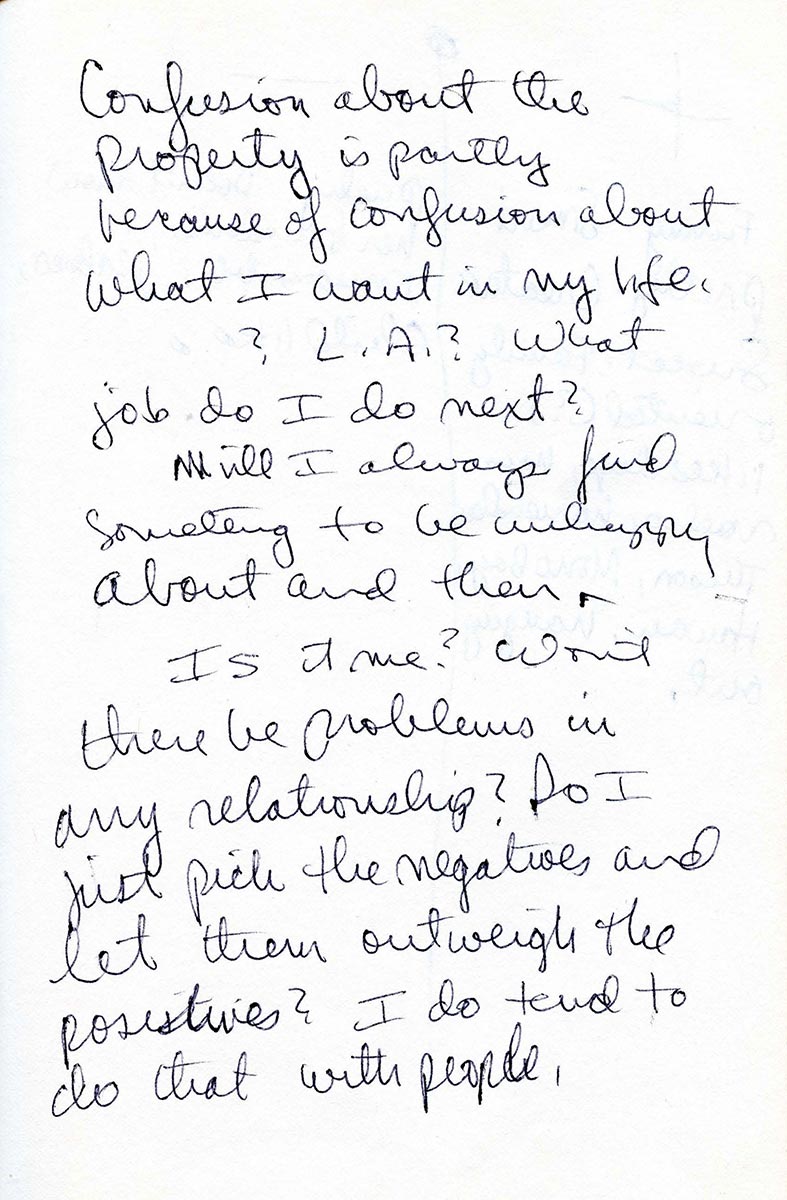 Confusion about the
property is partly
because of confusion about
what I want in my life.
?, L.A.? What
job do I do next?
Will I always find
something to be unhappy
about and then
Is it me? Won't
there be problems in
any relationship? Do I
just pick the negatives and
let them outweigh the
positives? I do tend to
do that with people.